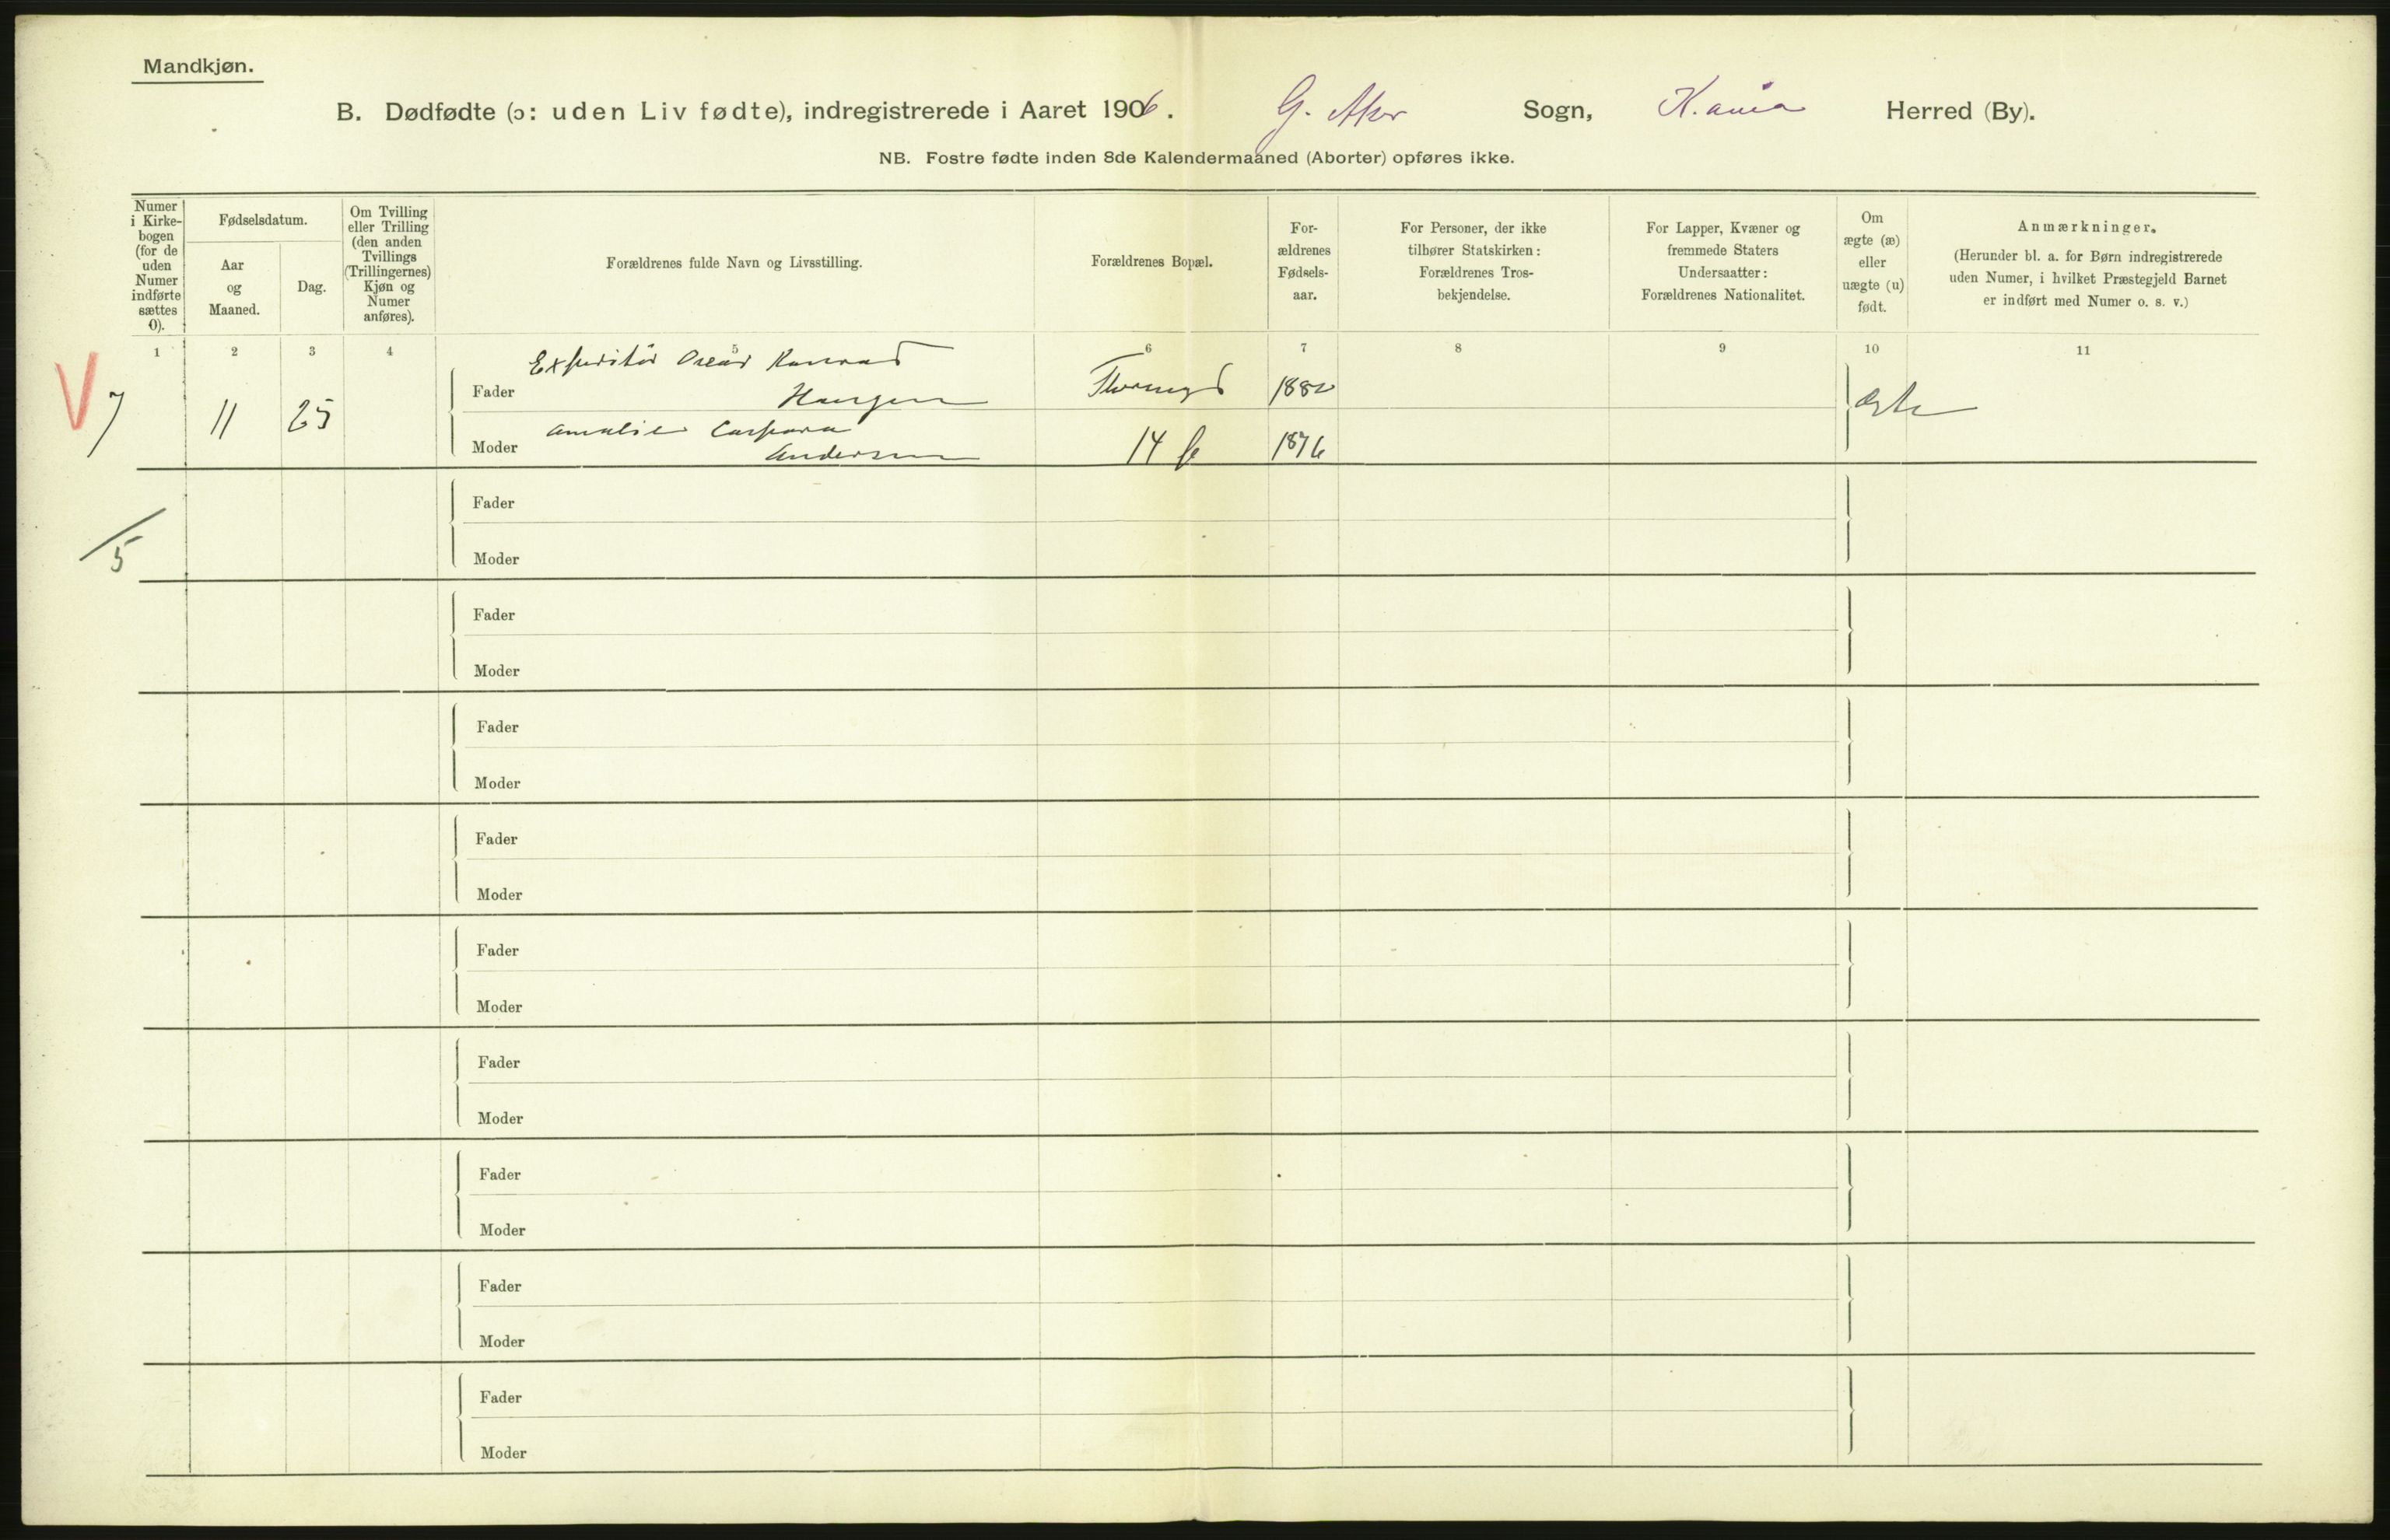 Mandkjøn.
B. Dødfødte (ɔ: uden Liv fødte), indregistrerede i Aaret 1906. G. Aker Sogn, K.ania Herred (By).
NB. Fostre fødte inden 8de Kalendermaaned (Aborter) opføres ikke.
Numer
i Kirke-
bogen
(for de
uden
Numer
indførte
sættes
0).
Fødselsdatum.
Aar
og
Maaned.
Dag.
Om Tvilling
eller Trilling
(den anden
Tvillings
(Trillingernes)
Kjøn og
Numer
anføres).
Forældrenes fulde Navn og Livsstilling.
Forældrenes Bopæl.
For-
ældrenes
Fødsels-
aar.
For Personer, der ikke
tilhører Statskirken:
Forældrenes Tros-
bekjendelse.
For Lapper, Kvæner og
fremmede Staters
Undersaatter:
Forældrenes Nationalitet.
Om
ægte (æ)
eller
uægte (u)
født.
Anmærkninger.
(Herunder bl. a. for Børn indregistrerede
uden Numer, i hvilket Præstegjeld Barnet
er indført med Numer o. s. v.)
1 2 3 4 5 6 7 8 9 10 11
V 7 11 25
Expeditør Oscar Konrad
Fader Hansen 1882
Ægte
Moder Amalie Caspara
Andersen 14 b 1876
5
Fader
Moder
Fader
Moder
Fader
Moder
Fader
Moder
Fader
Moder
Fader
Moder
Fader
Moder
Fader
Moder
Fader
Moder